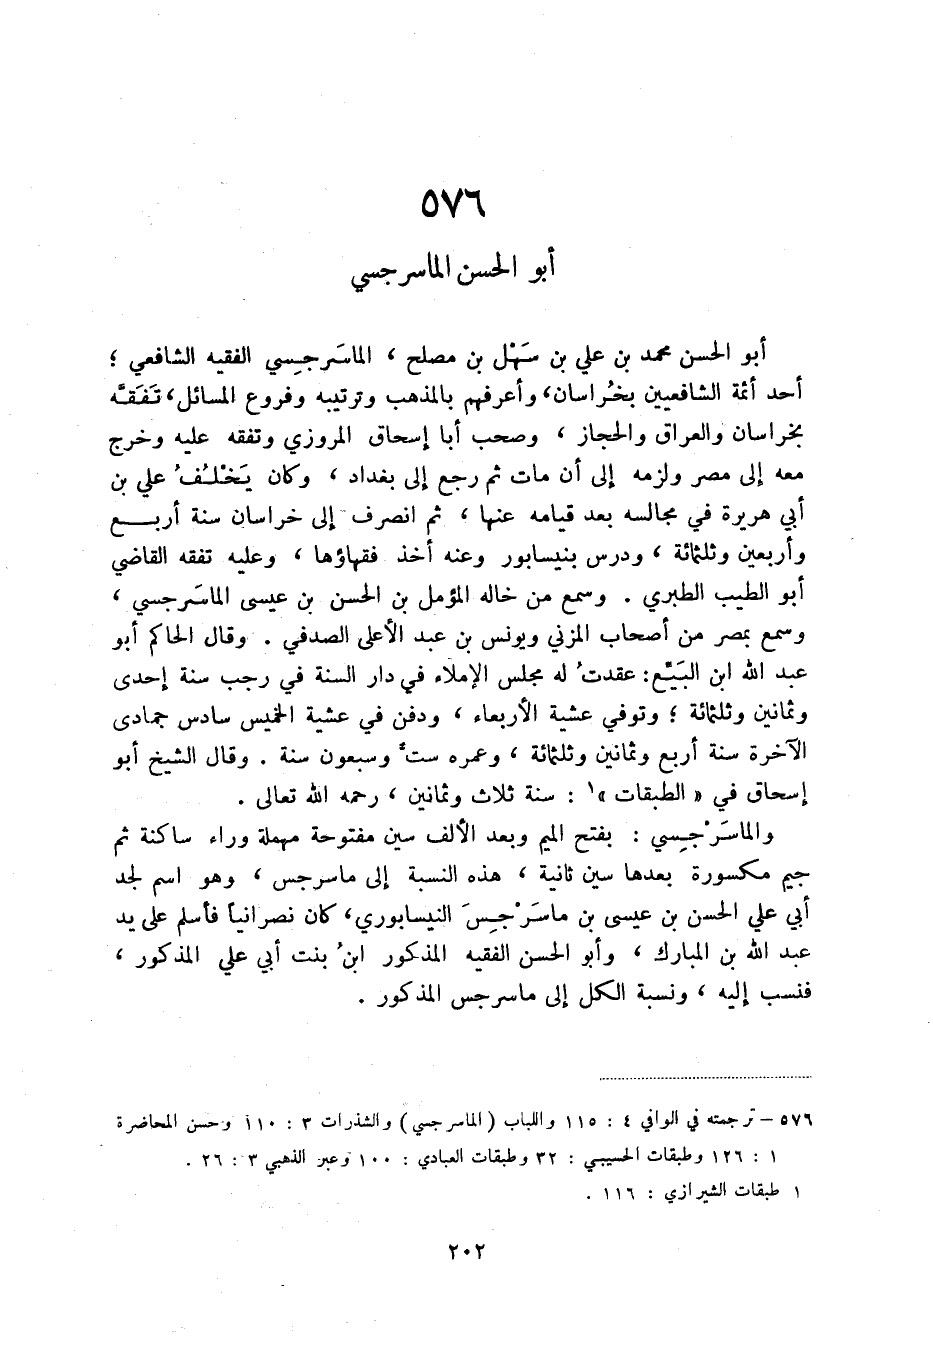 ٥٧٦
أبو الحسن الماسرجسي
أبو الحسن محمد بن علي بن سَهْل بن مصلح ، الماسَرجِسي الفقيه الشافعي ؛
أحد أئمة الشافعيين بخُراسان، وأعرفهم بالمذهب وترتيبه وفروع المسائل، تَفَقَّه
بخراسان والعراق والحجاز ، وصحب أبا إسحاق المروزي وتفقه عليه وخرج
معه إلى مصر ولزمه إلى أن مات ثم رجع إلى بغداد ، وكان يَخْلُفُ علي بن
أبي هريرة في مجالسه بعد قيامه عنها ، ثم انصرف إلى خراسان سنة أربـــع
وأربعين وثلثمائة ، ودرس بنيسابور وعنه أخذ فقهاؤها ، وعليه تفقه القاضي
أبو الطيب الطبري . وسمع من خاله المؤمل بن الحسن بن عيسى الماسَرجسي ،
وسمع بمصر من أصحاب المزني ويونس بن عبد الأعلى الصدفي . وقال الحاكم أبو
عبد الله ابن البَيِّع: عقدتُ له مجلس الإملاء في دار السنة في رجب سنة إحدى
وثمانين وثلثمائة ؛ وتوفي عشية الأربعاء ، ودفن في عشية الخميس سادس جمادى
الآخرة سنة أربع وثمانين وثلثمائة ، وعمره ستٌ وسبعون سنة . وقال الشيخ أبو
إسحاق في « الطبقات »١ : سنة ثلاث وثمانين ، رحمه الله تعالى .
والماسَرْجِسي : بفتح الميم وبعد الألف سين مفتوحة مهملة وراء ساكنة ثم
جيم مكسورة بعدها سين ثانية ، هذه النسبة إلى ماسرجس ، وهو اسم لجد
أبي علي الحسن بن عيسى بن ماسَرْجِسَ النيسابوري، كان نصرانياً فأسلم على يد
عبد الله بن المبارك ، وأبو الحسن الفقيه المذكور ابنُ بنت أبي علي المذكور ،
فنسب إليه ، ونسبة الكل إلى ماسرجس المذكور .
٥٧٦ - ترجمته في الوافي ٤ : ١١٥ واللباب (الماسرجسي) والشذرات ٣ : ١١٠ وحسن المحاضرة
١ : ١٢٦ وطبقات الحسيبي : ٣٢ وطبقات العبادي : ١٠٠ وعبر الذهبي ٣ : ٢٦ .
١ طبقات الشيرازي : ١١٦ .
٢٠٢